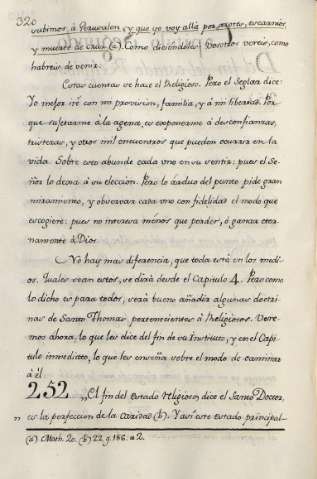 320
subimos à Jerusalen, y que yo voy allá por azotes, escarnios,
y muerte de Cruz (a). Como diciendoles: Vosotros vereis, como
habreis de venir.
Estas cuentas se hace el Religioso. Pero el Seglar dice:
Yo mejor iré con mi provision, familia, y à mi libertad. Por
que sujetarme à la agena, es exponerme à desconfianzas,
tristezas, y otros mil encuentros que pueden ocurrir en la
vida. Sobre esto abunde cada uno en su sentir: pues el Se-
ñor lo dexa à su eleccion. Pero lo arduo del punto pide gran
miramiento, y observar cada uno con fidelidad el modo que
escogiere: pues no interesa ménos que perder, ò ganar eter-
namente à Dios.
No hay mas diferencia, que toda está en los medi-
os. Quales sean estos, se dirá desde el Capitulo 4. Pero como
lo dicho es para todos, será bueno añadir algunas doctri-
nas de Santo Thomas, pertenecientes à Religiosos. Vere-
mos ahora, lo que les dice del fin de su Instituto, y en el Capi-
tulo inmediato, lo que les enseña sobre el modo de caminar
à él.
252 „El fin del Estado Religioso, dice el Santo Doctor,
„ es la perfeccion de la Caridad (b). Y asi este estado principal-
(a) Math. 20. (b) 22. q. 186. a 2.